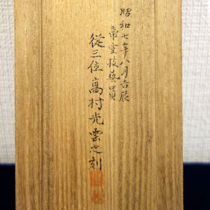 昭和七年八月吉辰
帝室技藝員
従三位高村光雲之刻